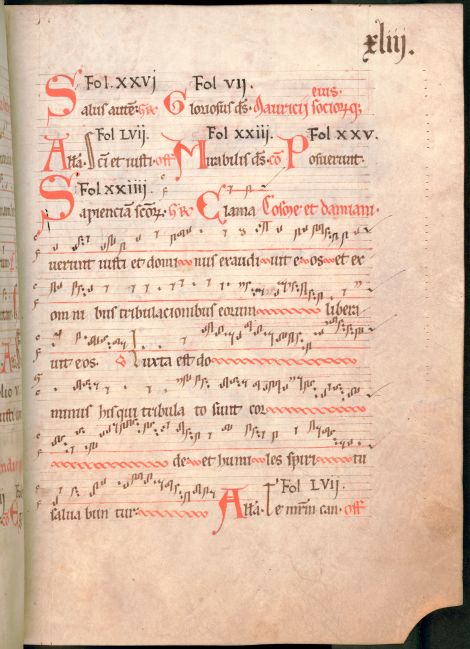 xliij.
Fol. xxvj Fol vij.
eius.
Salus autem Gr Gloriosus ds. Mauricij sociorq; 
Fol Lvij. Fol xxiij. Fol xxv.
Alla. Sci et iusti. off Mirabilis ds. co Posuerunt.
Fol xxiiij.
Sapienciam scor. Gr Clama Cosme et damiani.
verunt iusti et domi nus exaudi uit e os et ex
om ni bus tribulacionibus eorum libera
uit eos. Iuxta est do
minus his qui tribula to sunt cor
de et humi les spiri tu
salua bun tur. Fol Lvij.
Alla. Te mrm can. off